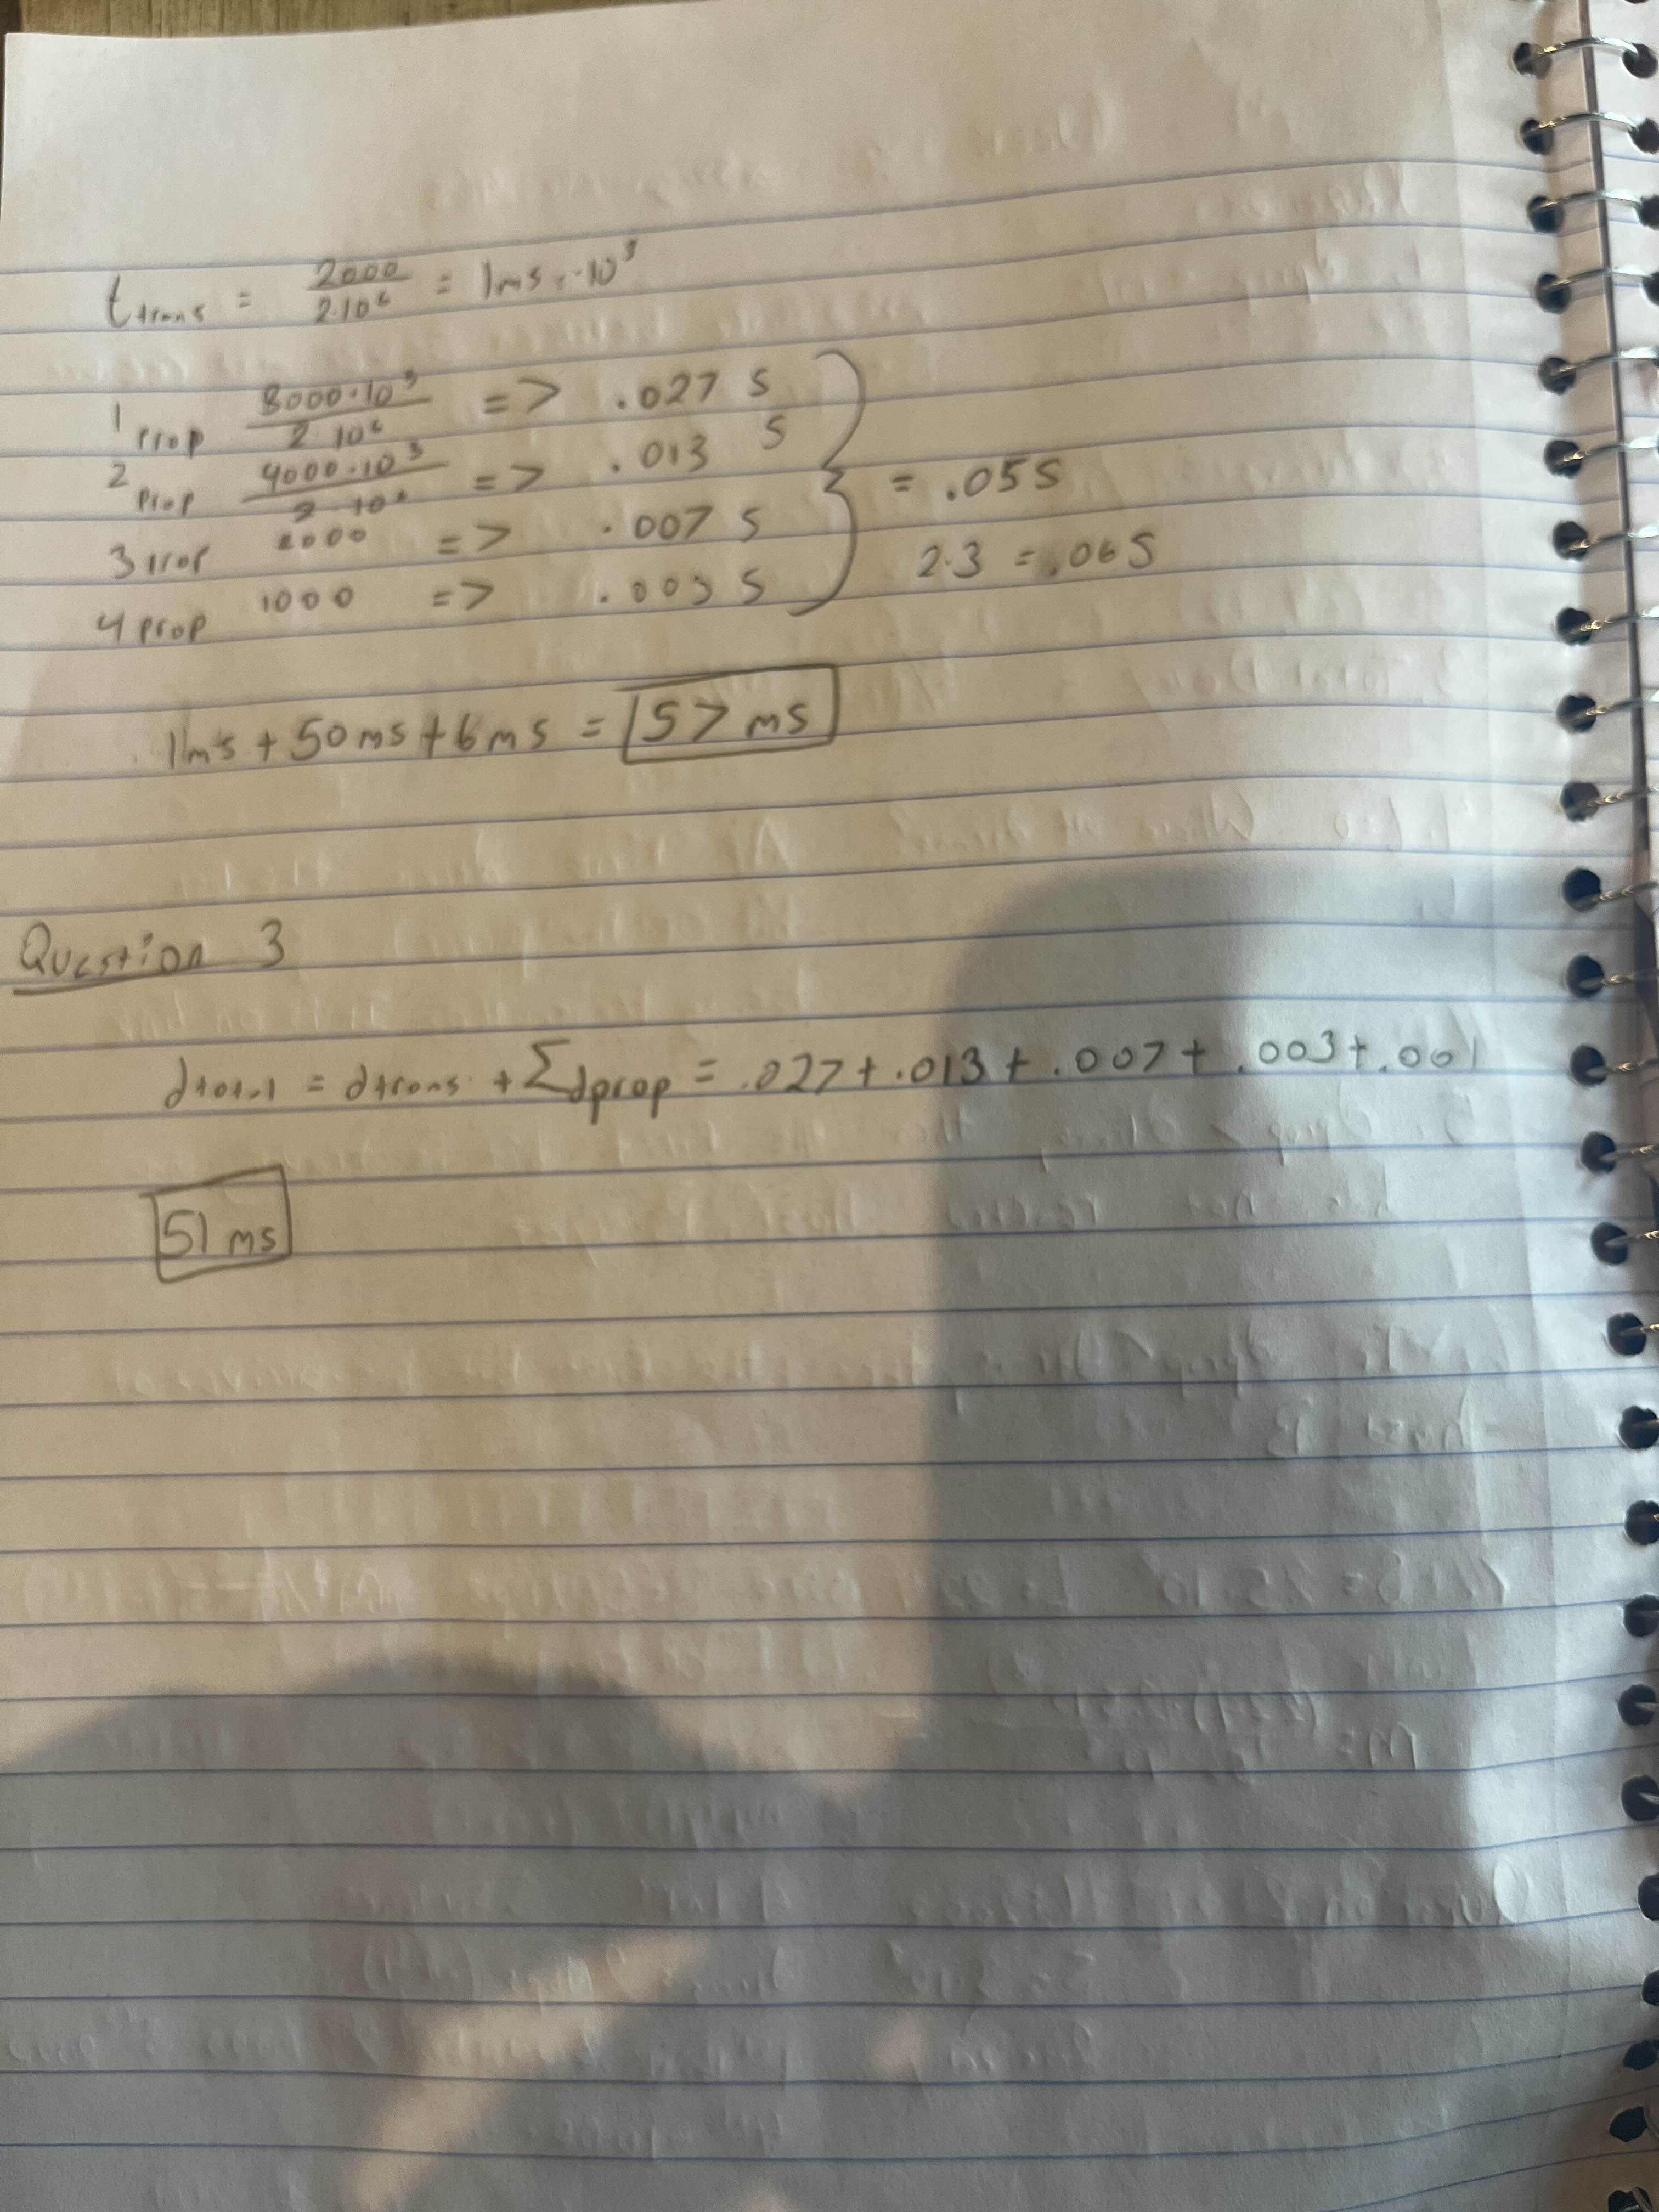 t trans = 2000 / 2·10⁶ = 1ms = 10³
1 prop 8000·10³ / 2·10⁶ => .027 s
2 prop 4000·10³ / 2·10⁶ => .013 s
3 prop 2000 => .007 s
4 prop 1000 => .003 s
= .05s
2·3 = .06s
1ms + 50ms + 6ms = 57 ms
Question 3
dtotal = dtrans + Σdprop = .027 + .013 + .007 + .003 + .001
51 ms